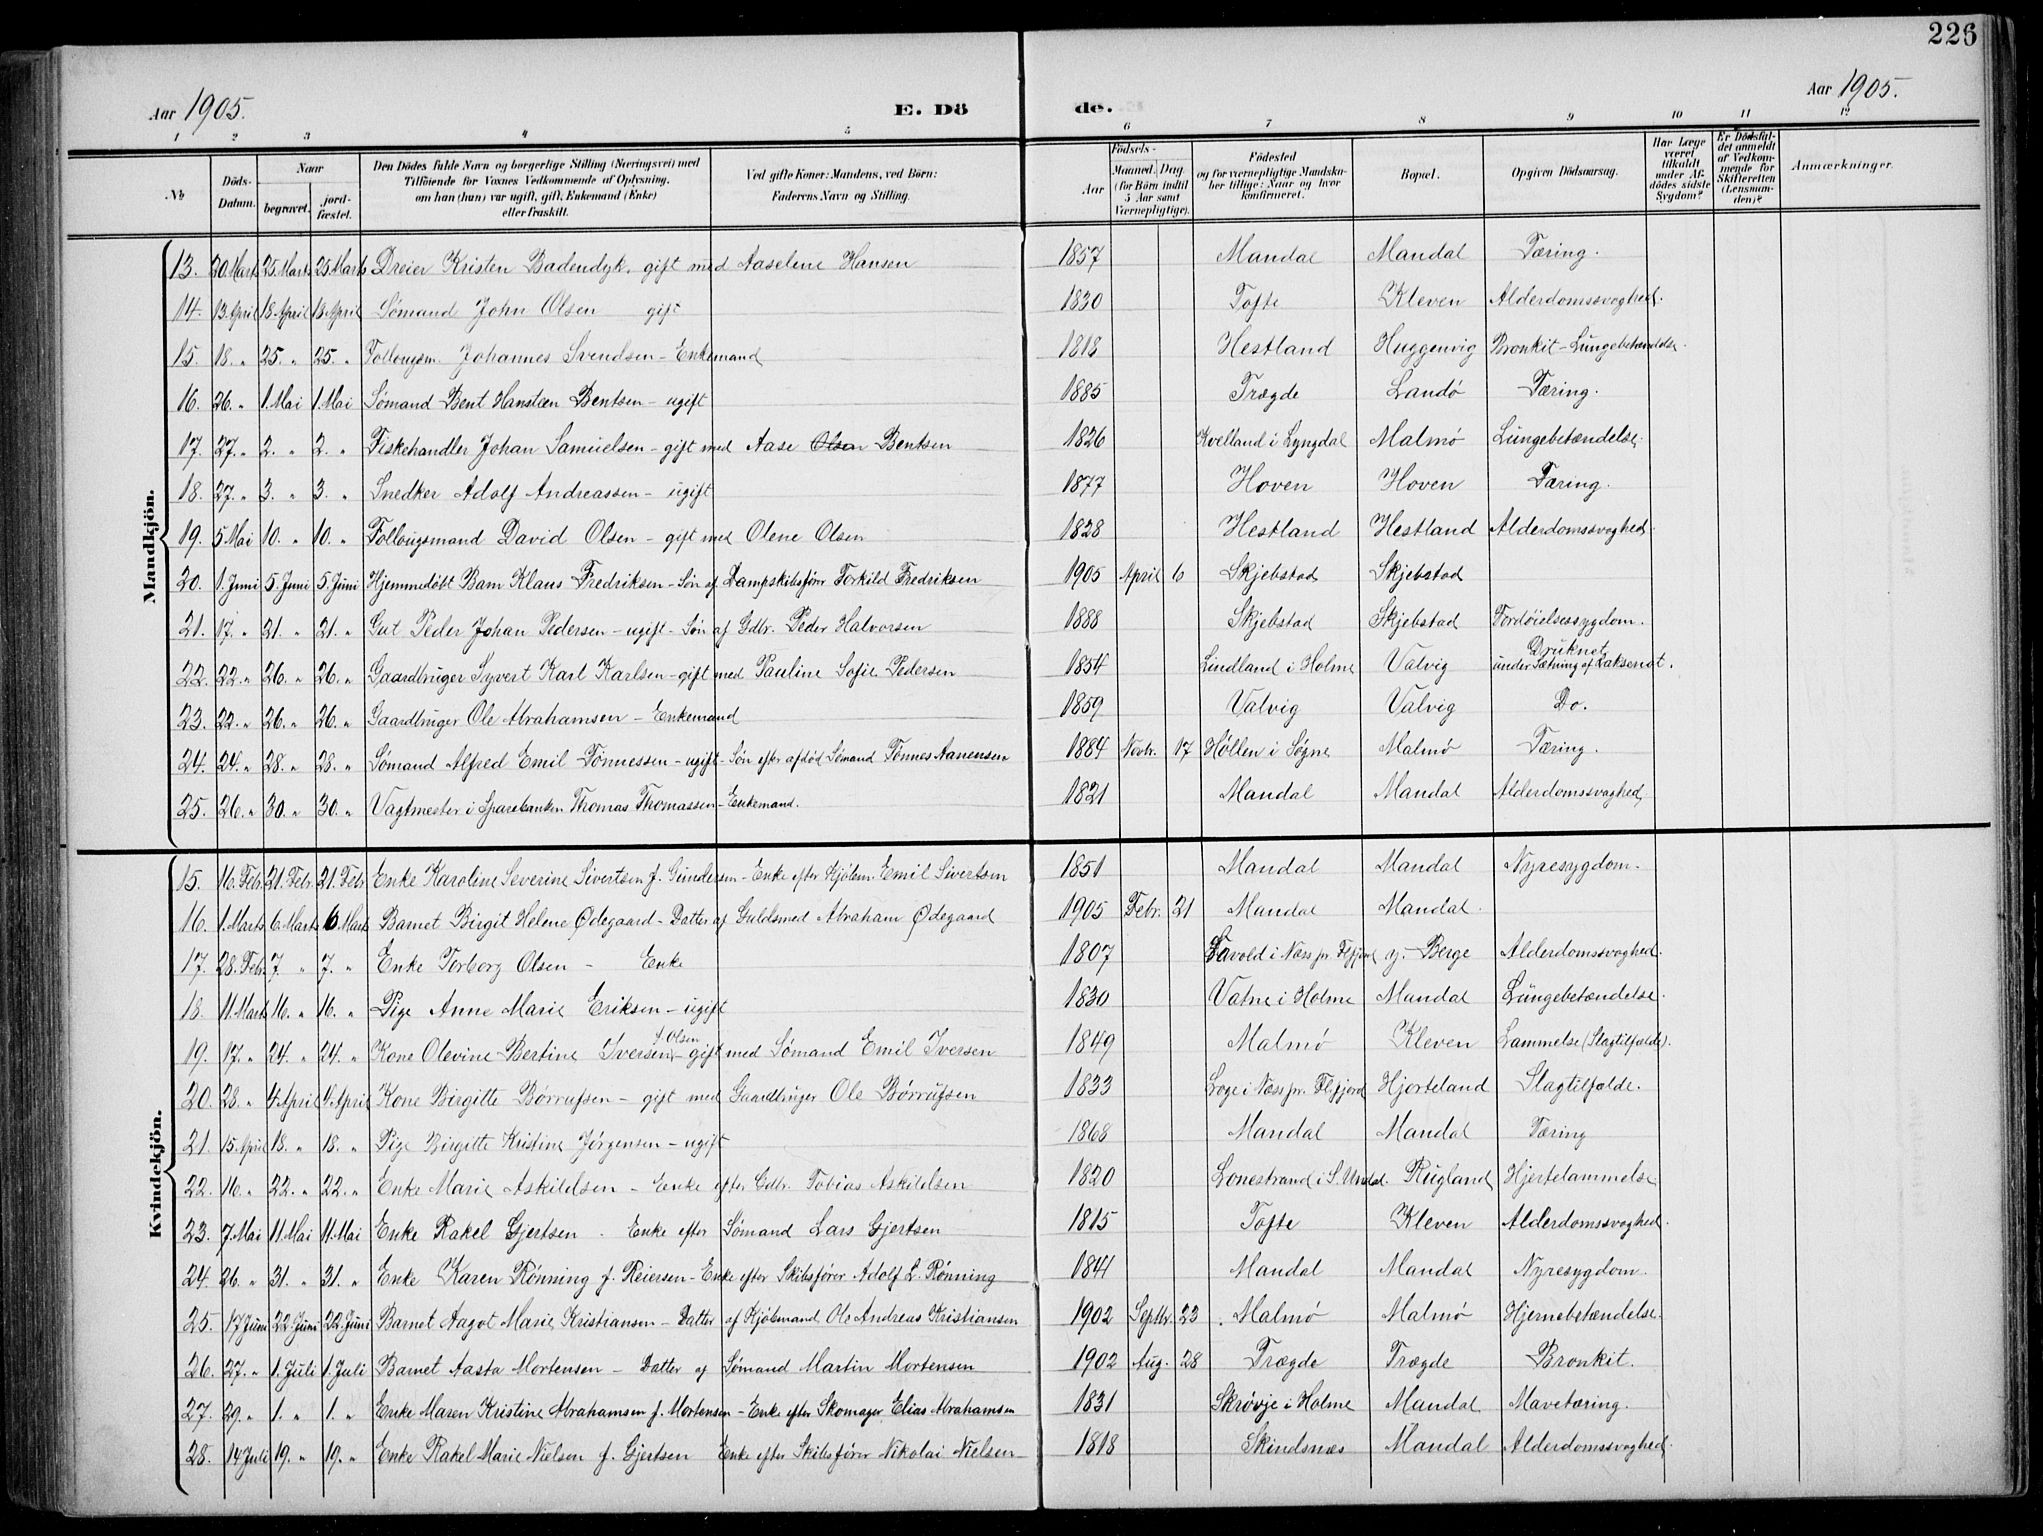 226
Aar 1905. E. Dö de. Aar 1905.
1 2 3 4 5 6 7 8 9 10 11 12
№ Döds-Datum. Naar begravet. jord-fæstet. Den Dödes fulde Navn og borgerlige Stilling (Næringsvei) med Tilföiende for Voxnes Vedkommende af Oplysning, om han (hun) var ugift, gift, Enkemand (Enke) eller fraskilt. Ved gifte Koner: Mandens, ved Börn: Faderens Navn og Stilling. Födsels- Aar Maaned. Dag. (for Börn indtil 5 Aar samt Værnepligtige). Födested og for værnepligtige Mandska-ber tillige: Naar og hvor konfirmeret. Bopæl. Opgiven Dödsaarsag. Har Læge været tilkaldt under Af-dödes sidste Sygdom? Er Dödsfal-det anmeldt af Vedkom-mende for Skifteretten (Lensman-den)? Anmærkninger.
Mandkjön.
13. 20. Marts 25. Marts 25. Marts Dreier Kristen Badendyk. gift med Aaselene Hansen 1857 Mandal Mandal Tæring.
14. 13. April 18. April 18. April Sømand John Olsen gift 1830 Tofte Kleven Alderdomssvaghed.
15. 18. " 25. " 25. " Føllougsm. Johannes Svendsen - Enkemand 1818 Hestland Huggenvig Bronkit - Lungebetændelse.
16. 26. " 1. Mai 1. Mai Sømand Bent Hansten Bentsen - ugift 1885 Trægde Landø Tæring.
17. 27. " 2. " 2. " Fiskehandler Johan Samuelsen - gift med Aase Olsen Bentsen 1826 Kvelland i Lyngdal Malmø Lungebetændelse.
18. 27. " 3. " 3. " Snedker Adolf Andreassen - ugift 1877 Hoven Hoven Tæring.
19. 5. Mai 10. " 10. " Føllougsmand David Olsen - gift med Olene Olsen 1828 Hestland Hestland Alderdomssvaghed.
20. 1. Juni 5. Juni 5. Juni Hjemmedøbt Barn Klaus Fredriksen - Søn af Dampskibsfører Torkild Fredriksen 1905 April 6 Skjebstad Skjebstad
21. 17. " 21. " 21. " Gut Peder Johan Pedersen - ugift - Søn af Gdbr. Peder Halvorsen 1888 Skjebstad Skjebstad Fordøielsessygdom.
22. 22. " 26. " 26. " Gaardbruger Syvert Karl Karlsen - gift med Pauline Sofie Pedersen 1854 Lindland i Holme Valvig Druknet under Sætning af Laksenot.
23. 22. " 26. " 26. " Gaardbruger Ole Abrahamsen - Enkemand 1859 Valvig Valvig Do.
24. 24. " 28. " 28. " Sømand Alfred Emil Tønnessen - ugift - Søn efter afdød Sømand Tønnes Aanensen 1884 Novbr. 17 Høllen i Søgne Malmø Tæring.
25. 26. " 30. " 30. " Vagtmester i Sparebanken Thomas Thomassen - Enkemand. 1821 Mandal Mandal Alderdomssvaghed
Kvindekjön.
15. 16. Febr. 21. Febr. 21. Febr. Enke Karoline Severine Sivertsen f. Gundersen - Enke efter Kjøbm. Emil Sivertsen 1851 Mandal Mandal Nyresygdom.
16. 1. Marts 6. Marts 6 Marts Barnet Birgit Helene Ødegaard - Datter af Guldsmed Abraham Ødegaard 1905 Febr. 21 Mandal Mandal.
17. 28. Febr. 7 " 7. " Enke Torborg Olsen - Enke 1807 i Næss pr. y. Berge Alderdomssvaghed.
18. 11. Marts 16. " 16. " Pige Anne Marie Eriksen - ugift 1830 Vatne i Holme Mandal Lungebetændelse.
19. 17. " 24. " 24. " Kone Olevine Bertine Iversen f. Olsen - gift med Sømand Emil Iversen 1849 Malmø Kleven Lammelse (Slagtilfælde).
20. 28. " 4. April 4. April Kone Birgitte Børrufsen - gift med Gaardbruger Ole Børrufsen 1833 Loge i Næss pr. Hjorteland Slagtilfælde.
21. 15. April 18. " 18. " Pige Birgitte Kristine Jørgensen - ugift 1868 Mandal Mandal Tæring
22. 16. " 22. " 22. " Enke Marie Askildsen - Enke efter Gdbr. Tobias Askildsen 1820 Lonestrand i S. Undal. Rugland Hjertelammelse
23. 7. Mai 11. Mai 11. Mai Enke Rakel Gjertsen. Enke efter Sømand Lars Gjertsen 1815 Tofte Kleven Alderdomssvaghed.
24. 26. " 31. " 31. " Enke Karen Rønning f. Reiersen - Enke efter Skibsfører Adolf L. Rønning 1841 Mandal Mandal Nyresygdom.
25. 17 Juni 22. Juni 22. Juni Barnet Aagot Marie Kristiansen - Datter af Kjøbmand Ole Andreas Kristiansen 1902 Septbr. 23 Malmø Malmø Hjernebetændelse.
26. 27. " 1. Juli 1. Juli Barnet Aasta Mortensen - Datter af Sømand Martin Mortensen 1902 Aug. 28 Trægde Trægde Bronkit.
27. 29. " 1. " 1. " Enke Maren Kristine Abrahamsen f. Mortensen - Enke efter Skomager Elias Abrahamsen 1831 Skrøvje i Holme Mandal Mavetæring.
28. 14 Juli 19. " 19. " Enke Rakel Marie Nielsen f. Gjertsen Enke efter Skibsfører Nikolai Nielsen 1818 Skindsnæs Mandal Alderdomssvaghed.